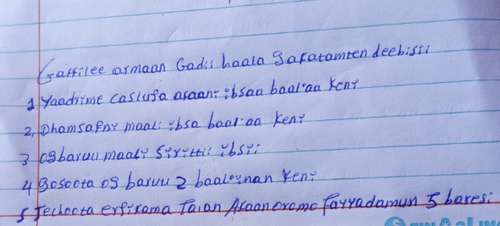 Gaffilee armaan Gadii haala gafatamten deebisii
1 Yaadrime Casluga afaani ibsaa baal'aa Keni
2, Dhamsagni maali ibsa baal'aa Keni
3 ogbaruu maali Sirittii ibsii
4 gosoota og baruu 2 baaloinan Keni
5 Jechoota erfirama Taian Afaan oromo fayyadamun 5 baresi